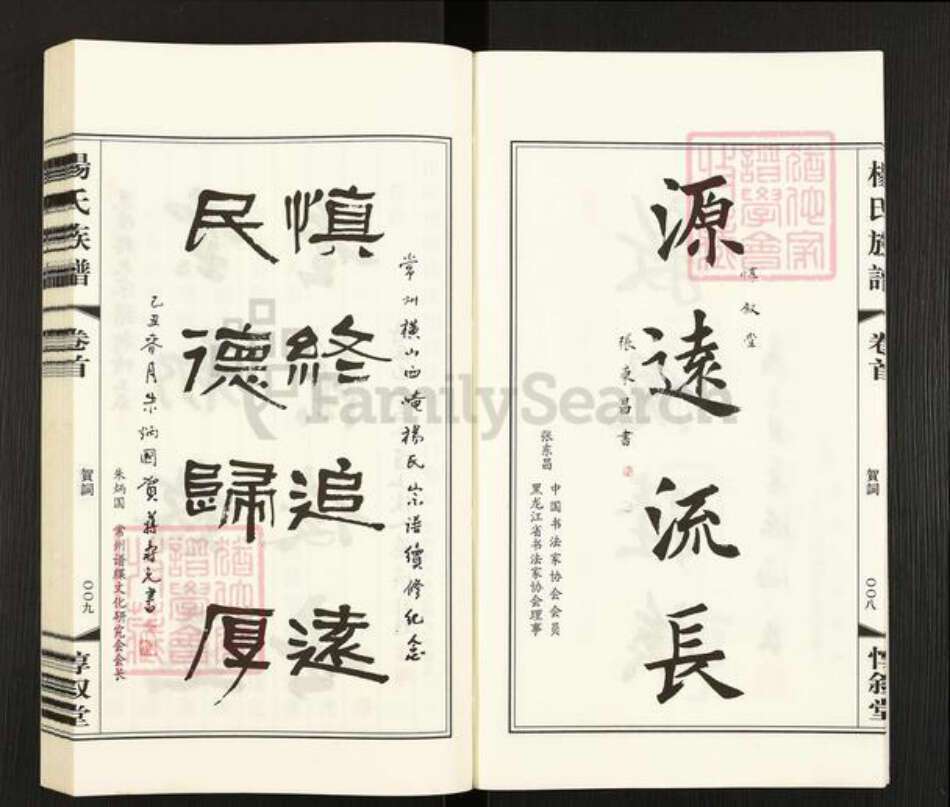 楊氏族譜
卷首
賀詞
〇〇八
惇叙堂
源遠流長
惇叙堂
張東昌書
张东昌 中国书法家协会会员
黑龙江省书法家协会理事
常州橫山西崦楊氏宗譜續修紀念
慎終追遠
民德歸厚
己丑齐月朱炳國賀蔣寿元書
朱炳国 常州谱牒文化研究会会长
楊氏族譜
卷首
賀詞
〇〇九
惇叙堂
FamilySearch